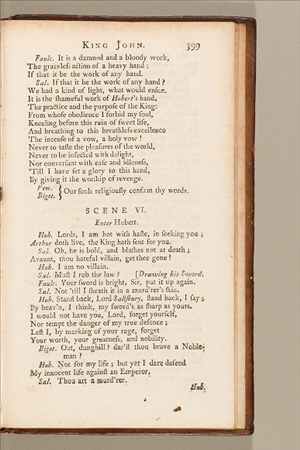 KING JOHN. 399
Faulc. It is a damned and a bloody work,
The graceless action of a heavy hand:
If that it be the work of any hand.
Sal. If that it be the work of any hand?
We had a kind of light, what would ensue.
It is the shameful work of Hubert's hand,
The practice and the purpose of the King:
From whose obedience I forbid my soul,
Kneeling before this ruin of sweet life,
And breathing to this breathless excellence
The incense of a vow, a holy vow!
Never to taste the pleasures of the world,
Never to be infected with delight,
Nor conversant with ease and idleness,
'Till I have set a glory to this hand,
By giving it the worship of revenge.
Pem.
Bigot. } Our souls religiously confirm thy words.
SCENE VI.
Enter Hubert.
Hub. Lords, I am hot with haste, in seeking you;
Arthur doth live, the King hath sent for you.
Sal. Oh, he is bold, and blushes not at death;
Avaunt, thou hateful villain, get thee gone!
Hub. I am no villain.
Sal. Must I rob the law? [Drawing his Sword.
Faulc. Your sword is bright, Sir, put it up again.
Sal. Not 'till I sheath it in a murd'rer's skin.
Hub. Stand back, Lord Salisbury, stand back, I say;
By heav'n, I think, my sword's as sharp as yours.
I would not have you, Lord, forget yourself,
Nor tempt the danger of my true defence;
Lest I, by marking of your rage, forget
Your worth, your greatness, and nobility.
Bigot. Out, dunghill! dar'st thou brave a Noble-
man?
Hub. Not for my life; but yet I dare defend
My innocent life against an Emperor.
Sal. Thou art a murd'rer.
Hub.